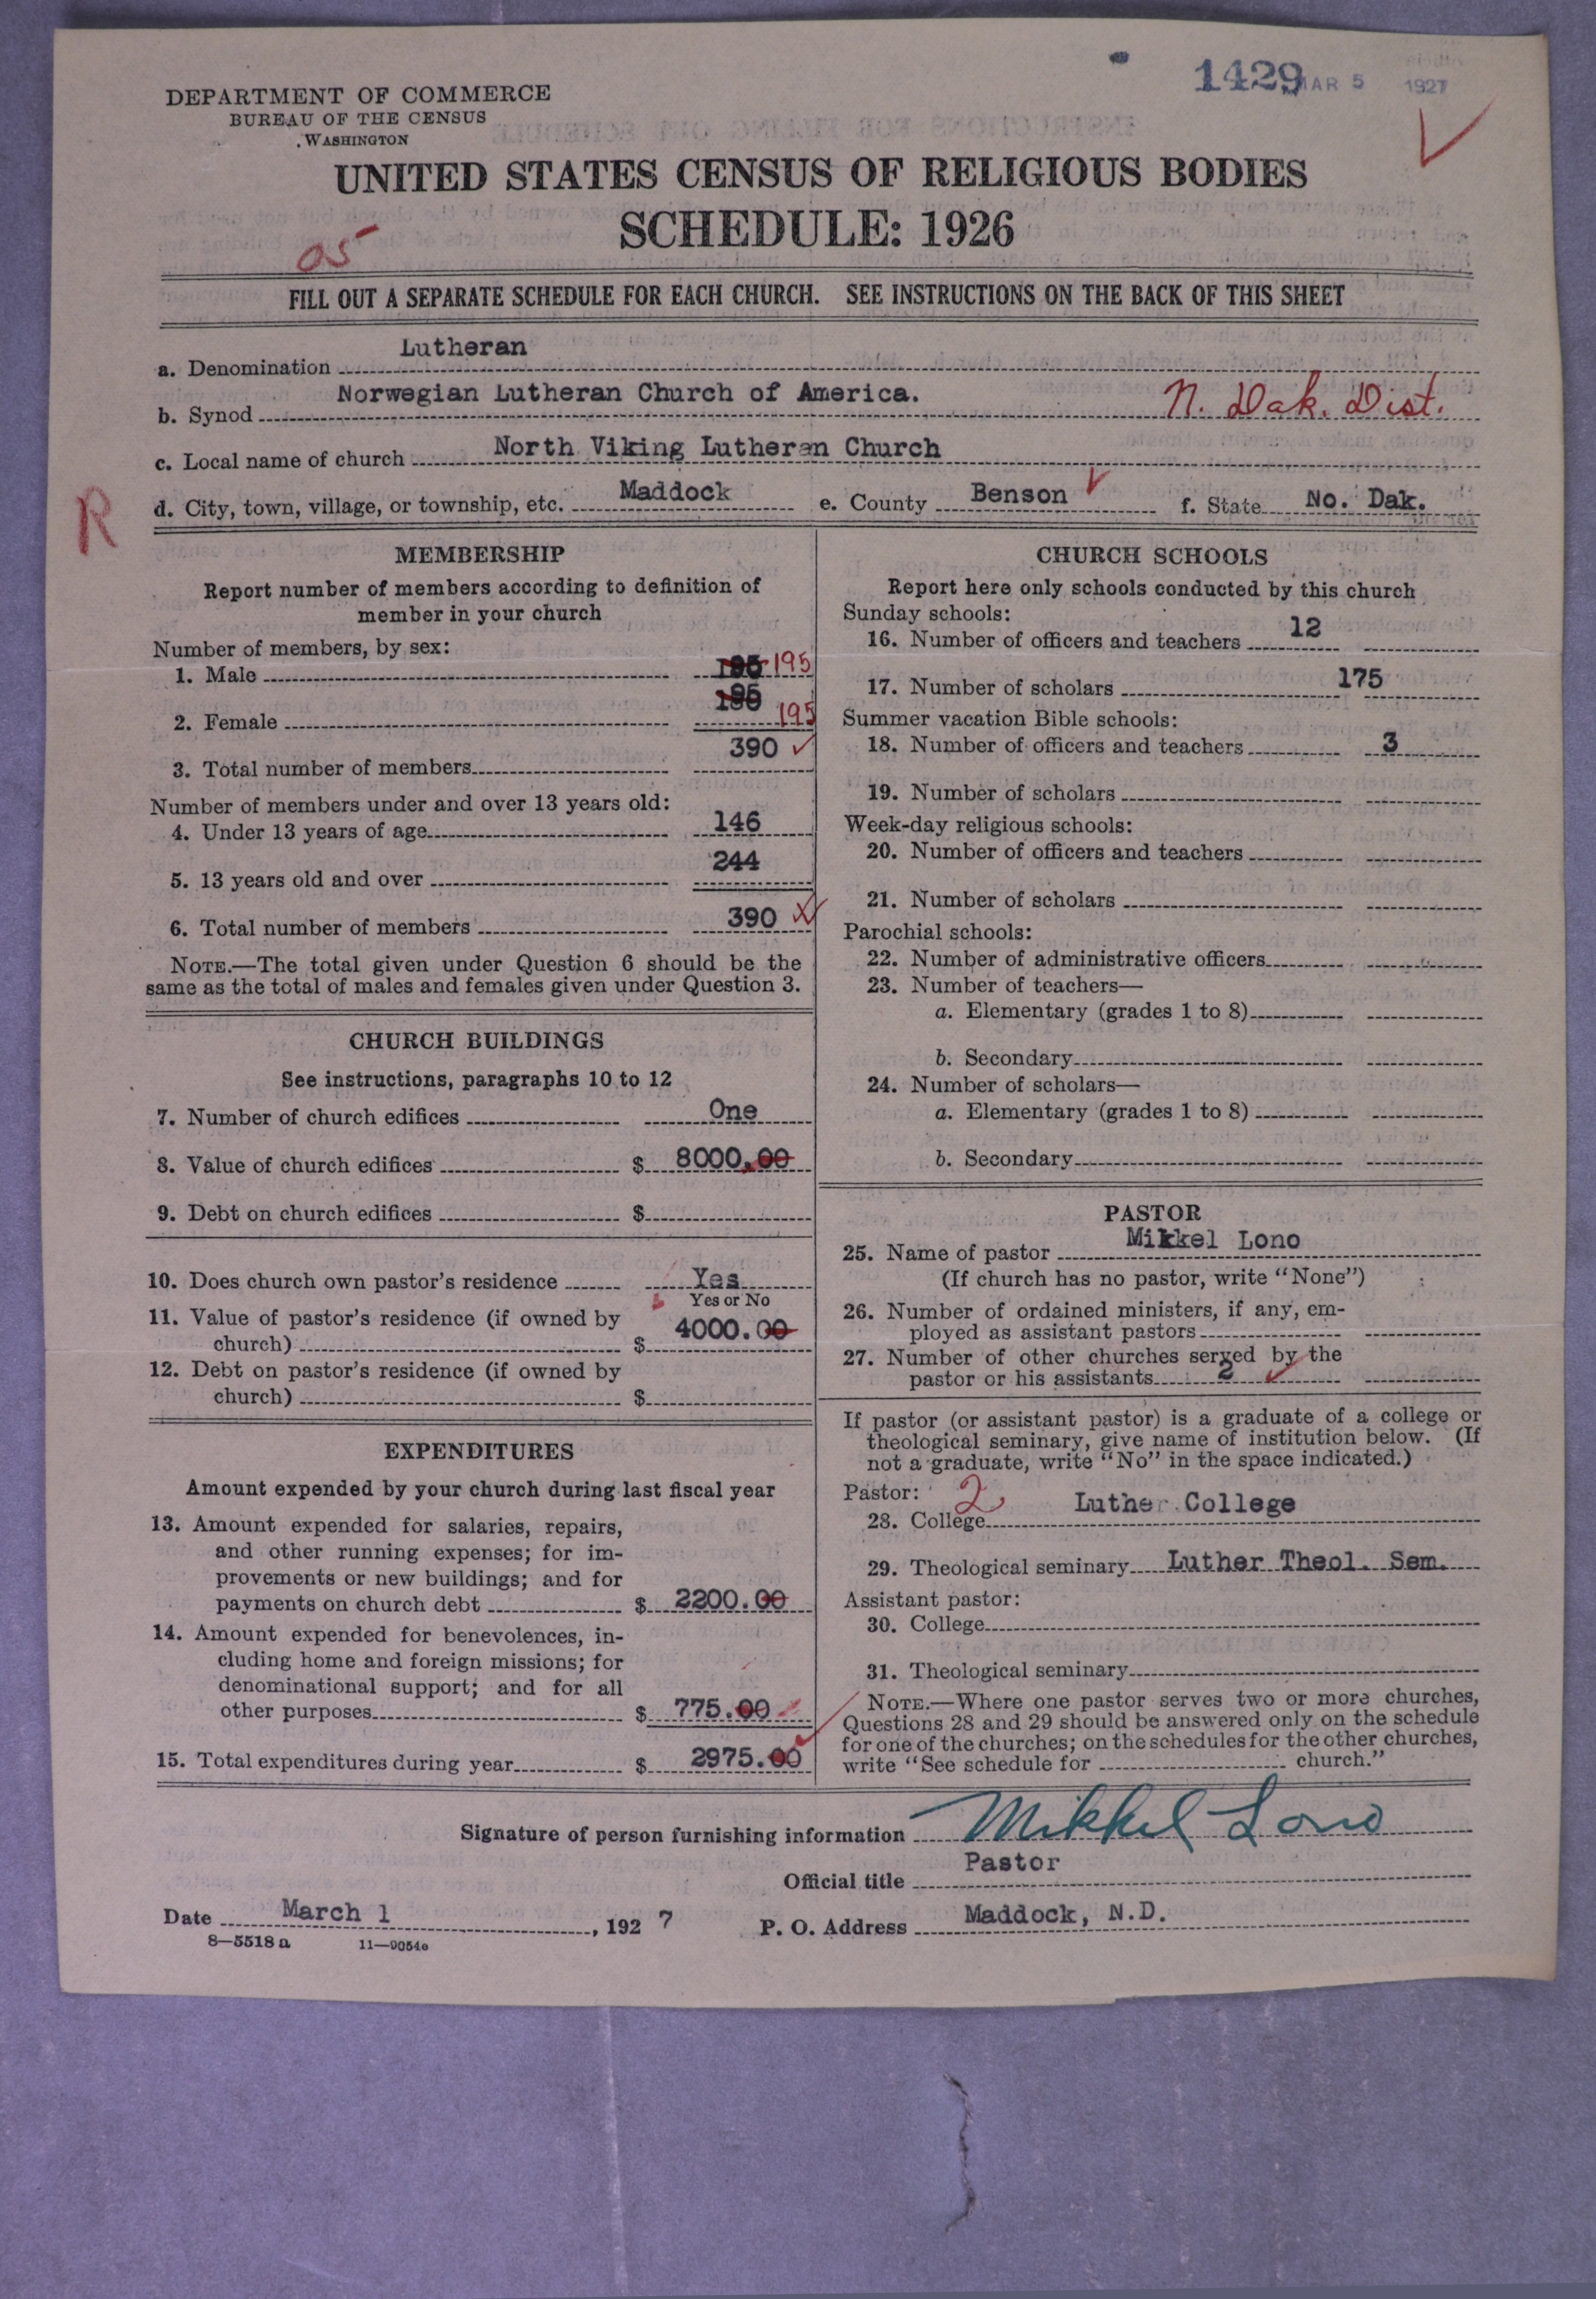 1429 MAR 5 1927
DEPARTMENT OF COMMERCE
BUREAU OF THE CENSUS
WASHINGTON
UNITED STATES CENSUS OF RELIGIOUS BODIES
SCHEDULE: 1926
05
FILL OUT A SEPARATE SCHEDULE FOR EACH CHURCH. SEE INSTRUCTIONS ON THE BACK OF THIS SHEET
a. Denomination Lutheran
b. Synod Norwegian Lutheran Church of America. N. Dak. Dist.
c. Local name of church North Viking Lutheran Church
R
d. City, town, village, or township, etc. Maddock e. County Benson f. State No. Dak.
MEMBERSHIP
Report number of members according to definition of
member in your church
Number of members, by sex:
1. Male 195 195
2. Female 195 195
3. Total number of members 390
Number of members under and over 13 years old:
4. Under 13 years of age 146
5. 13 years old and over 244
6. Total number of members 390
NOTE.—The total given under Question 6 should be the
same as the total of males and females given under Question 3.
CHURCH BUILDINGS
See instructions, paragraphs 10 to 12
7. Number of church edifices One
8. Value of church edifices $ 8000.00
9. Debt on church edifices $
10. Does church own pastor's residence Yes
Yes or No
11. Value of pastor's residence (if owned by
church) $ 4000.00
12. Debt on pastor's residence (if owned by
church) $
EXPENDITURES
Amount expended by your church during last fiscal year
13. Amount expended for salaries, repairs,
and other running expenses; for im-
provements or new buildings; and for
payments on church debt $ 2200.00
14. Amount expended for benevolences, in-
cluding home and foreign missions; for
denominational support; and for all
other purposes $ 775.00
15. Total expenditures during year $ 2975.00
CHURCH SCHOOLS
Report here only schools conducted by this church
Sunday schools:
16. Number of officers and teachers 12
17. Number of scholars 175
Summer vacation Bible schools:
18. Number of officers and teachers 3
19. Number of scholars
Week-day religious schools:
20. Number of officers and teachers
21. Number of scholars
Parochial schools:
22. Number of administrative officers
23. Number of teachers—
a. Elementary (grades 1 to 8)
b. Secondary
24. Number of scholars—
a. Elementary (grades 1 to 8)
b. Secondary
PASTOR
25. Name of pastor Mikkel Lono
(If church has no pastor, write "None")
26. Number of ordained ministers, if any, em-
ployed as assistant pastors
27. Number of other churches served by the
pastor or his assistants 2
If pastor (or assistant pastor) is a graduate of a college or
theological seminary, give name of institution below. (If
not a graduate, write "No" in the space indicated.)
Pastor: 2
28. College Luther College
29. Theological seminary Luther Theol. Sem.
Assistant pastor:
30. College
31. Theological seminary
NOTE.—Where one pastor serves two or more churches,
Questions 28 and 29 should be answered only on the schedule
for one of the churches; on the schedules for the other churches,
write "See schedule for church."
Signature of person furnishing information Mikkel Lono
Official title Pastor
Date March 1, 1927 P. O. Address Maddock, N.D.
8—5518a 11—9054e